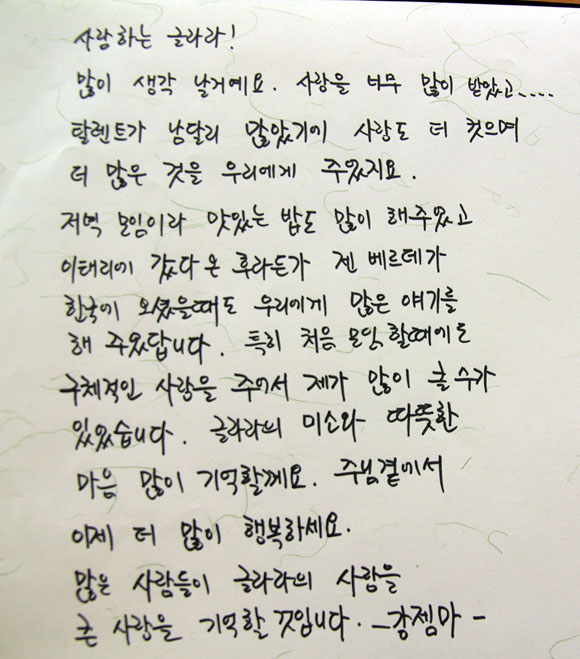 사랑하는 글라라!
많이 생각 날거예요. 사랑을 너무 많이 받았고....
탈렌트가 남달리 많았기에 사랑도 더 컷으며
더 많은 것을 우리에게 주었지요.
저녁 모임이라 맛있는 밥도 많이 해주었고
이태리에 갔다 온 후라든가 젠 베르데가
한국에 오셨을때도 우리에게 많은 얘기를
해 주었답니다. 특히 처음 모임 할때에도
구체적인 사랑을 주어서 제가 많이 클 수가
있었습니다. 글라라의 미소와 따뜻한
마음 많이 기억할께요. 주님곁에서
이제 더 많이 행복하세요.
많은 사람들이 글라라의 사랑을
큰 사랑을 기억할 것입니다. -강젬마-